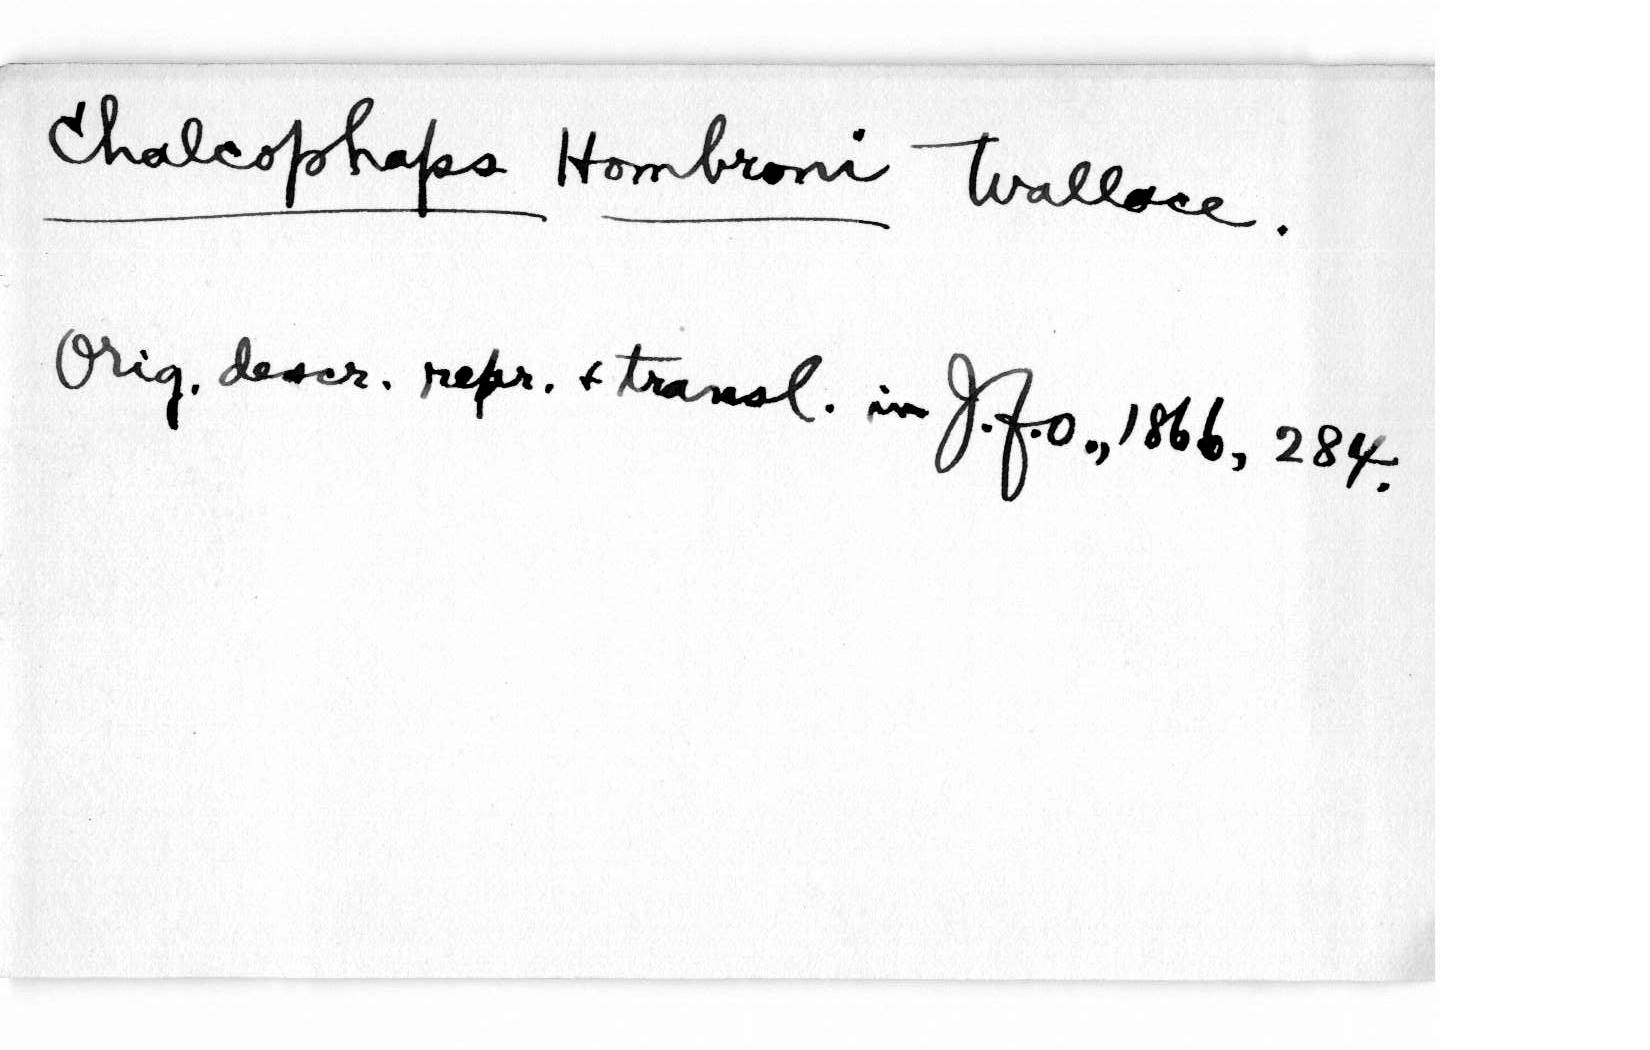 Chalcophaps Hombroni Wallace.
Orig. descr. repr. & transl. in J.f.O., 1866, 284.